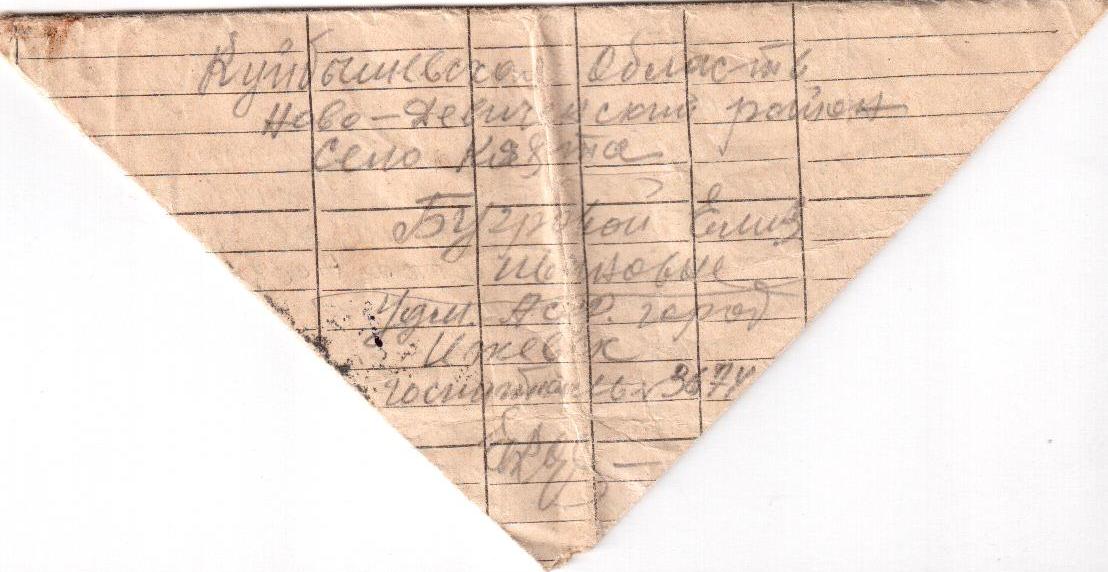 Куйбышевская Область
Ново-Девиченский район
Село Кяхта
Бугровой Елиз
Ивановне
Удм. АсСР. город
Ижевск
госпиталь № 3674